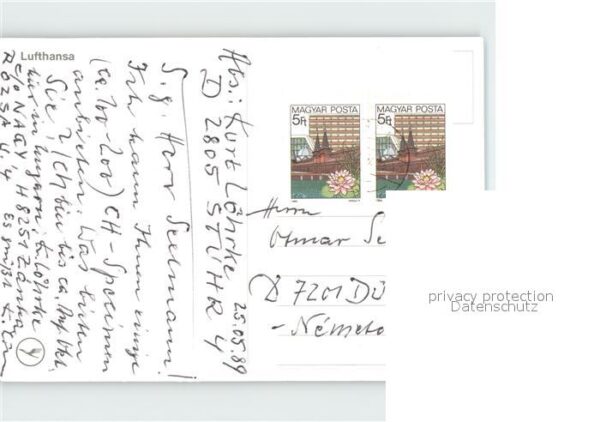 Lufthansa
Abs.: Kurt Löhrke
D 2805 STUHR 4
25.05.89
S. g. Herr Seelmann!
Ich kann Ihnen einige
(ca. 100-200) CH-Specimen
anbieten. Was bieten
Sie? Ich bin bis ca.
hier in Ungarn: K. Löhrke
c/o NAGY, H 8251 Zánka
RÓZSA U. 4
MAGYAR POSTA
5Ft
MAGYAR POSTA
5Ft
Herrn
Otmar Se
D 7201 DÜ
-Németo
privacy protection
Datenschutz